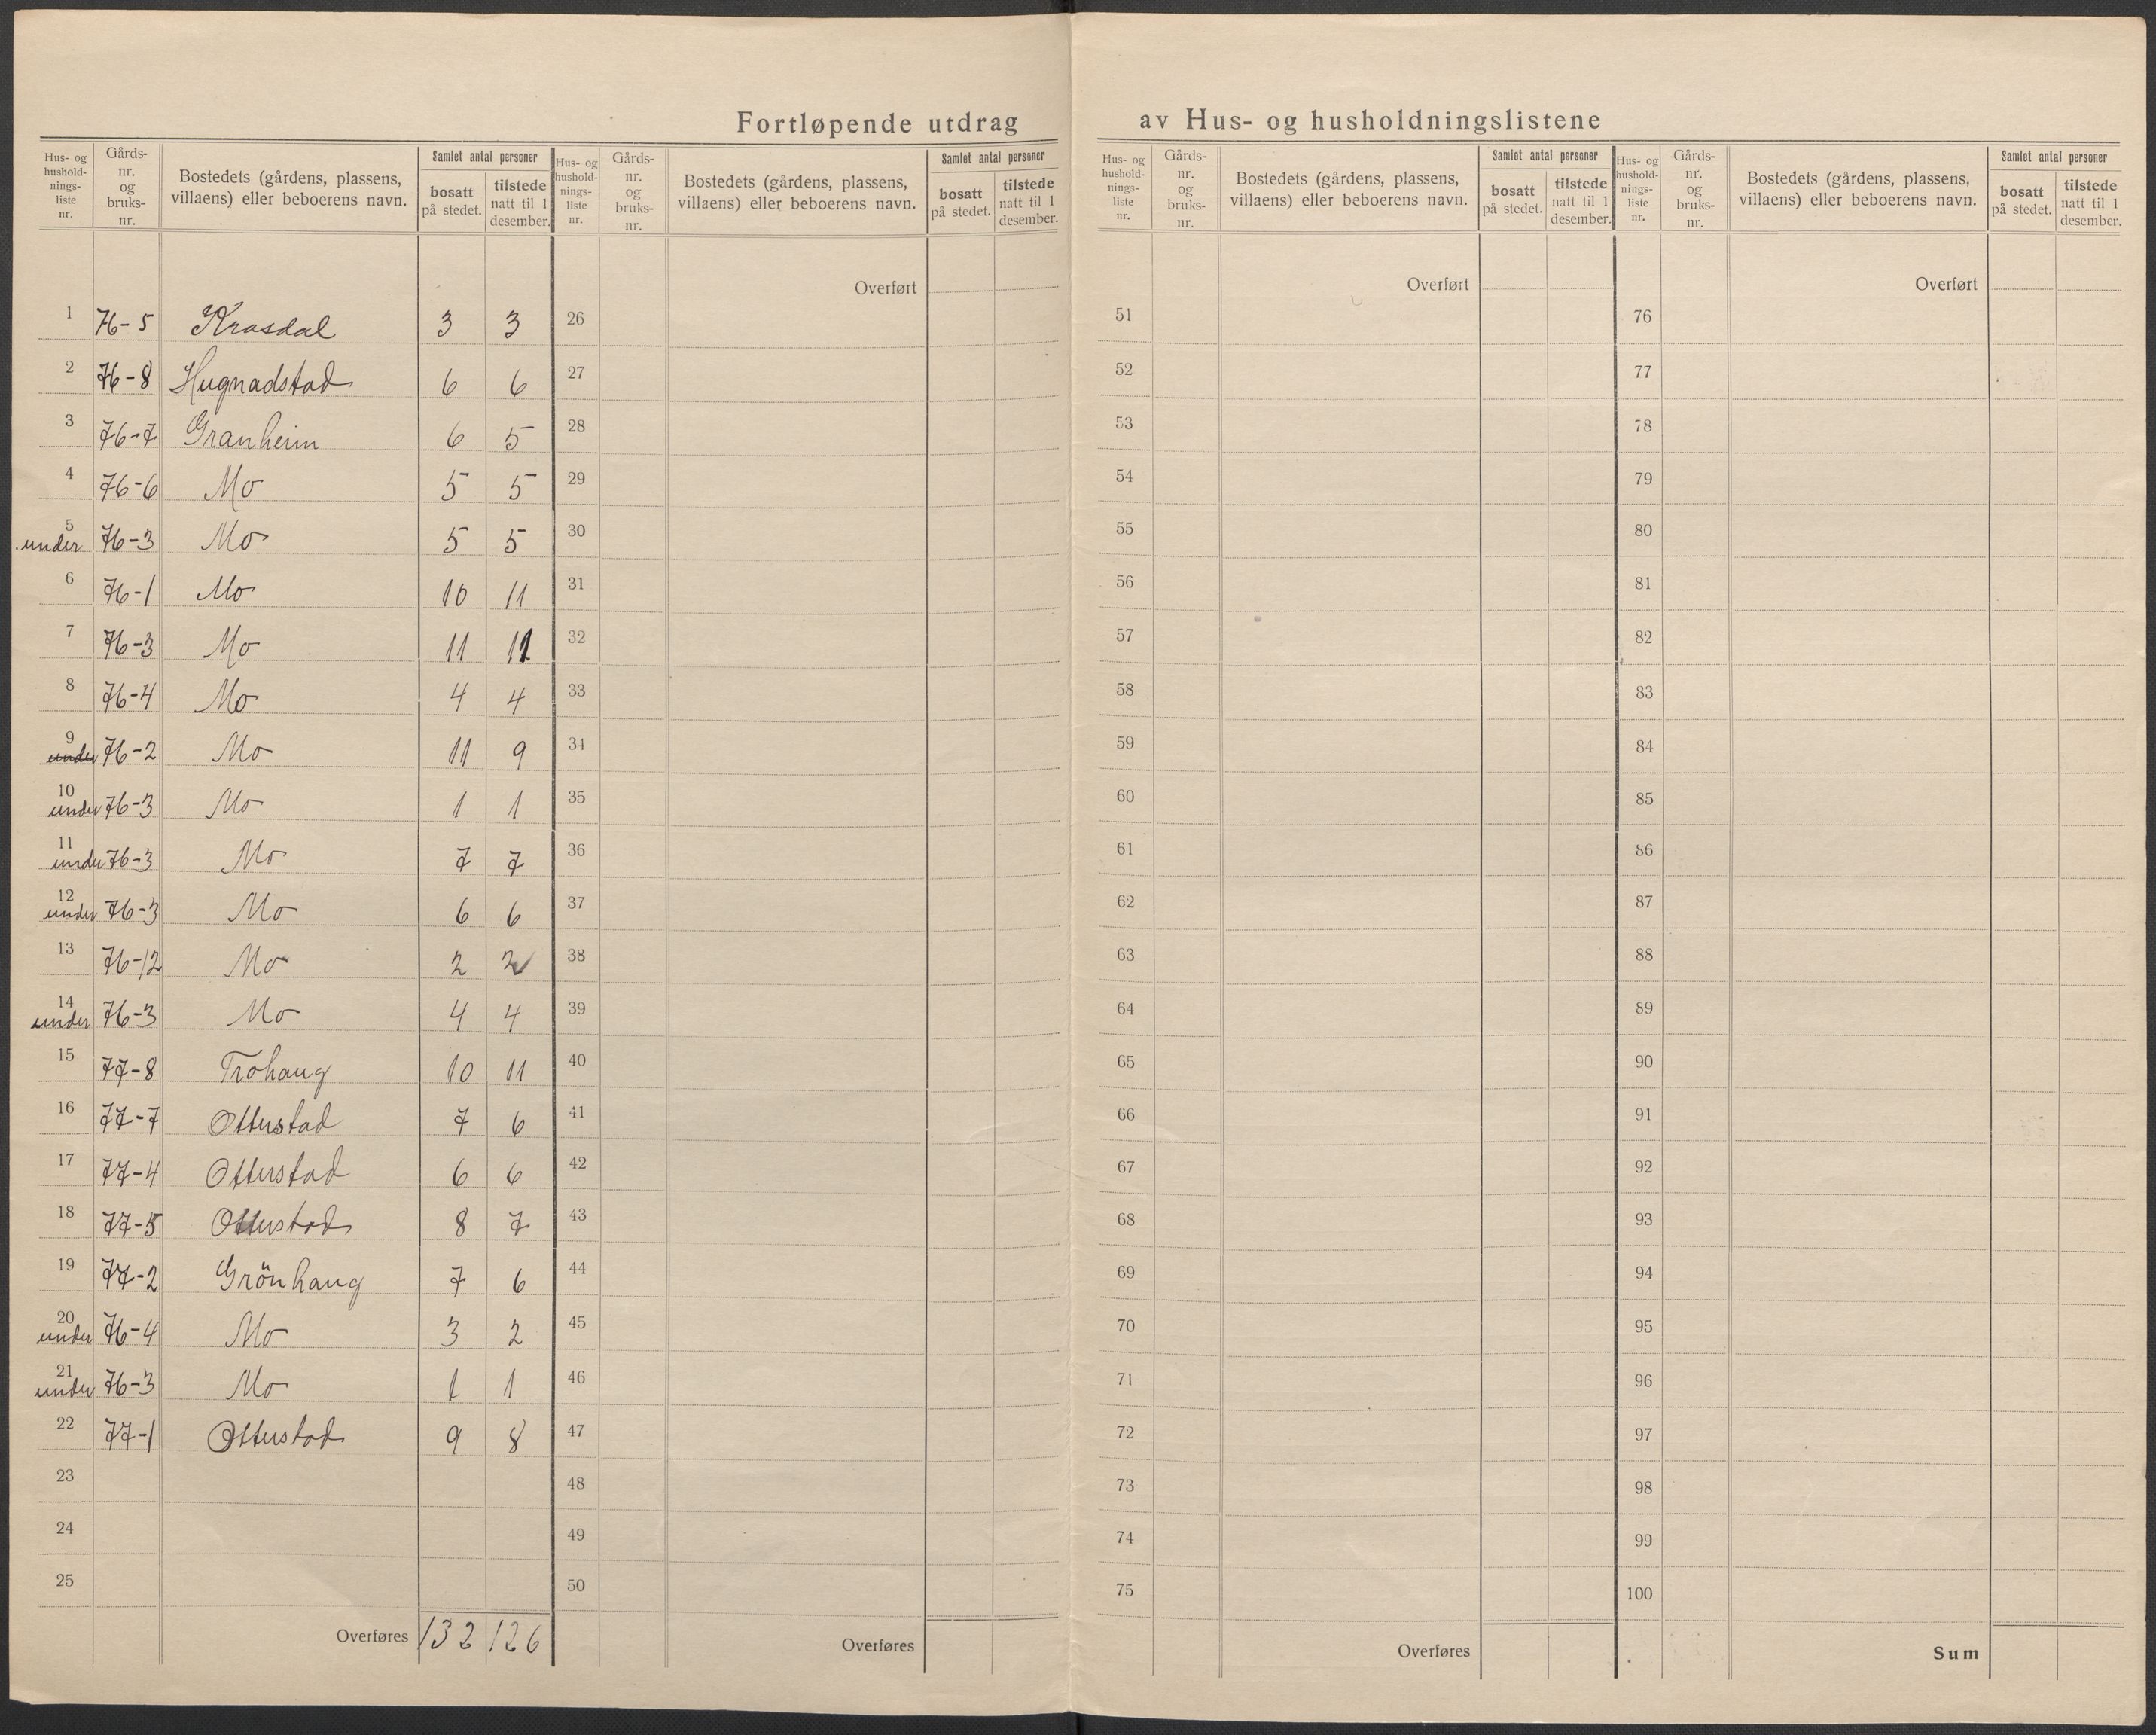 Fortløpende utdrag av Hus- og husholdningslistene
Hus- og hushold- nings- liste nr.
Gårds- nr. og bruks- nr.
Bostedets (gårdens, plassens, villaens) eller beboerens navn.
Samlet antal personer
bosatt på stedet.
tilstede natt til 1 desember.
Hus- og hushold- nings- liste nr.
Gårds- nr. og bruks- nr.
Bostedets (gårdens, plassens, villaens) eller beboerens navn.
Samlet antal personer
bosatt på stedet.
tilstede natt til 1 desember.
Hus- og hushold- nings- liste nr.
Gårds- nr. og bruks- nr.
Bostedets (gårdens, plassens, villaens) eller beboerens navn.
Samlet antal personer
bosatt på stedet.
tilstede natt til 1 desember.
Hus- og hushold- nings- liste nr.
Gårds- nr. og bruks- nr.
Bostedets (gårdens, plassens, villaens) eller beboerens navn.
Samlet antal personer
bosatt på stedet.
tilstede natt til 1 desember.
1 76-5 Krosdal 3 3
2 76-8 Hugnadstad 6 6
3 76-7 Granheim 6 5
4 76-6 Mo 5 5
5 under 76-3 Mo 5 5
6 76-1 Mo 10 11
7 76-3 Mo 11 11
8 76-4 Mo 4 4
9 under 76-2 Mo 11 9
10 under 76-3 Mo 1 1
11 under 76-3 Mo 7 7
12 under 76-3 Mo 6 6
13 76-12 Mo 2 2
14 under 76-3 Mo 4 4
15 77-8 Trohaug 10 11
16 77-7 Ottustad 7 6
17 77-4 Ottustad 6 6
18 77-5 Ottustad 8 7
19 77-2 Grönhaug 7 6
20 under 76-4 Mo 3 2
21 under 76-3 Mo 1 1
22 77-1 Ottustad 9 8
23
24
25
Overføres 132 126
Overført
26
27
28
29
30
31
32
33
34
35
36
37
38
39
40
41
42
43
44
45
46
47
48
49
50
Overføres
Overført
51
52
53
54
55
56
57
58
59
60
61
62
63
64
65
66
67
68
69
70
71
72
73
74
75
Overføres
Overført
76
77
78
79
80
81
82
83
84
85
86
87
88
89
90
91
92
93
94
95
96
97
98
99
100
Sum